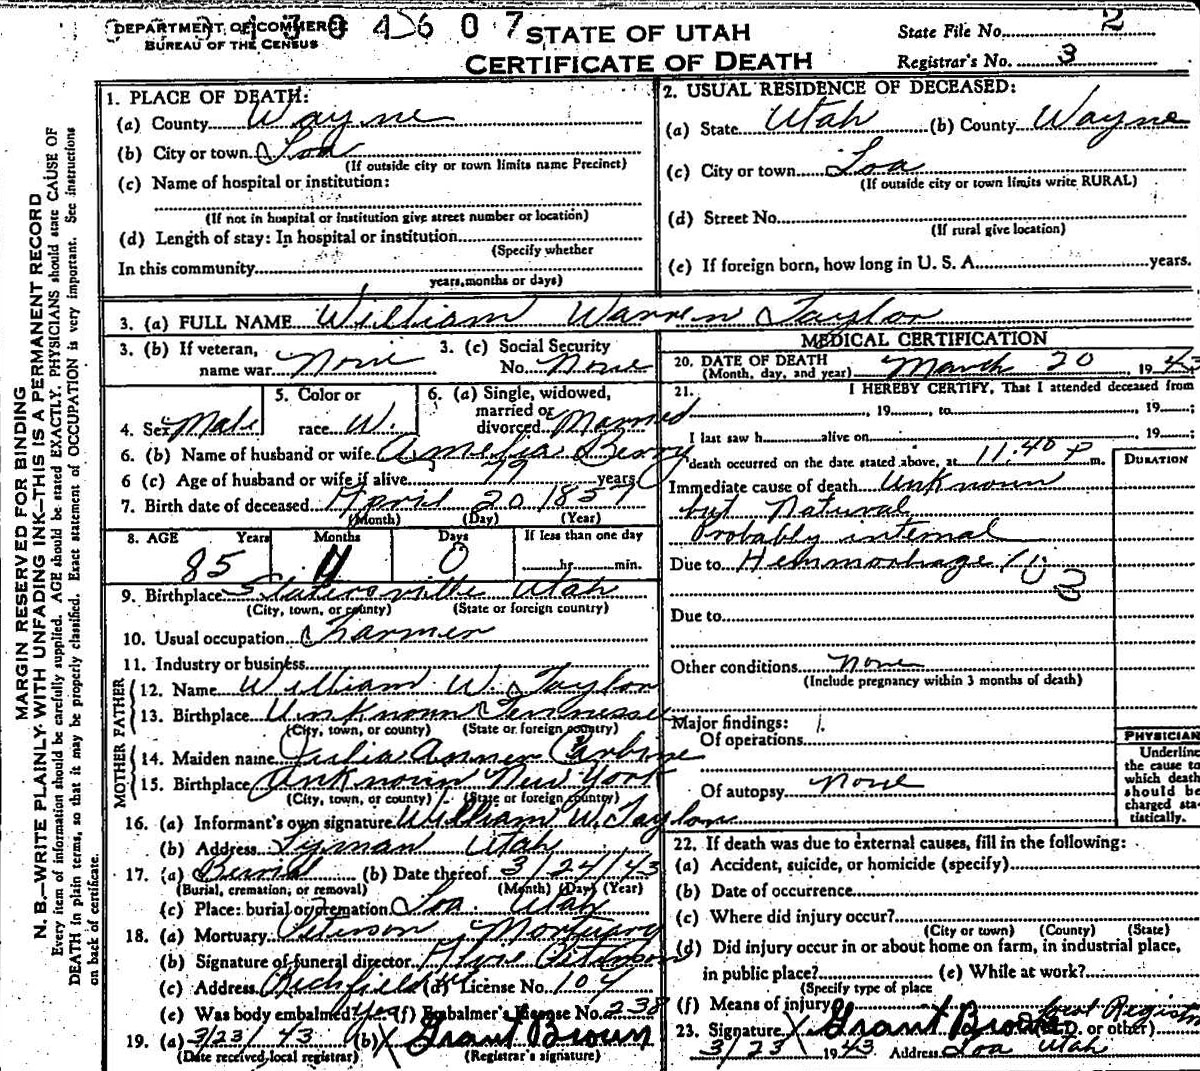 DEPARTMENT OF COMMERCE
BUREAU OF THE CENSUS
304607
STATE OF UTAH
CERTIFICATE OF DEATH
State File No. 2
Registrar's No. 3
MARGIN RESERVED FOR BINDING
N. B.—WRITE PLAINLY WITH UNFADING INK—THIS IS A PERMANENT RECORD
Every item of information should be carefully supplied. AGE should be stated EXACTLY. PHYSICIANS should state CAUSE OF
DEATH in plain terms, so that it may be properly classified. Exact statement of OCCUPATION is very important. See instructions
on back of certificate.
1. PLACE OF DEATH:
(a) County Wayne
(b) City or town Loa
(If outside city or town limits name Precinct)
(c) Name of hospital or institution:
(If not in hospital or institution give street number or location)
(d) Length of stay: In hospital or institution
(Specify whether
In this community
years, months or days)
2. USUAL RESIDENCE OF DECEASED:
(a) State Utah (b) County Wayne
(c) City or town Loa
(If outside city or town limits write RURAL)
(d) Street No.
(If rural give location)
(e) If foreign born, how long in U. S. A. years.
3. (a) FULL NAME William Warren Taylor
3. (b) If veteran, name war None
3. (c) Social Security No. None
4. Sex Male
5. Color or race W.
6. (a) Single, widowed, married or divorced Married
6. (b) Name of husband or wife Amelia Berry
6 (c) Age of husband or wife if alive 79 years
7. Birth date of deceased April 20 1857
(Month) (Day) (Year)
8. AGE Years Months Days If less than one day
85 11 0 hr. min.
9. Birthplace Slatersville Utah
(City, town, or county) (State or foreign country)
10. Usual occupation Farmer
11. Industry or business
FATHER
12. Name William W. Taylor
13. Birthplace Unknown Tennessee
(City, town, or county) (State or foreign country)
MOTHER
14. Maiden name Julia
15. Birthplace Unknown New York
(City, town, or county) (State or foreign country)
16. (a) Informant's own signature William W. Taylor
(b) Address Lyman Utah
17. (a) Burial (b) Date thereof 3/24/43
(Burial, cremation, or removal) (Month) (Day) (Year)
(c) Place: burial or cremation Loa Utah
18. (a) Mortuary Peterson Mortuary
(b) Signature of funeral director
(c) Address Richfield (d) License No. 107
(e) Was body embalmed Yes (f) Embalmer's License No. 238
19. (a) 3/23/43 (b) X Grant Brown
(Date received local registrar) (Registrar's signature)
MEDICAL CERTIFICATION
20. DATE OF DEATH
(Month, day, and year) March 20, 1943
21. I HEREBY CERTIFY, That I attended deceased from
, 19 , to , 19 ;
I last saw h alive on , 19 ;
death occurred on the date stated above, at 11:40 P m.
DURATION
Immediate cause of death Unknown
but Natural
Probably internal
Due to Hemmorhage
Due to
Other conditions None
(Include pregnancy within 3 months of death)
Major findings:
Of operations
Of autopsy None
PHYSICIAN
Underline
the cause to
which death
should be
charged sta-
tistically.
22. If death was due to external causes, fill in the following:
(a) Accident, suicide, or homicide (specify)
(b) Date of occurrence
(c) Where did injury occur?
(City or town) (County) (State)
(d) Did injury occur in or about home on farm, in industrial place,
in public place? (e) While at work?
(Specify type of place
(f) Means of injury
23. Signature X Grant Brown Local Registr
D. or other)
3/23 1943 Address Loa Utah